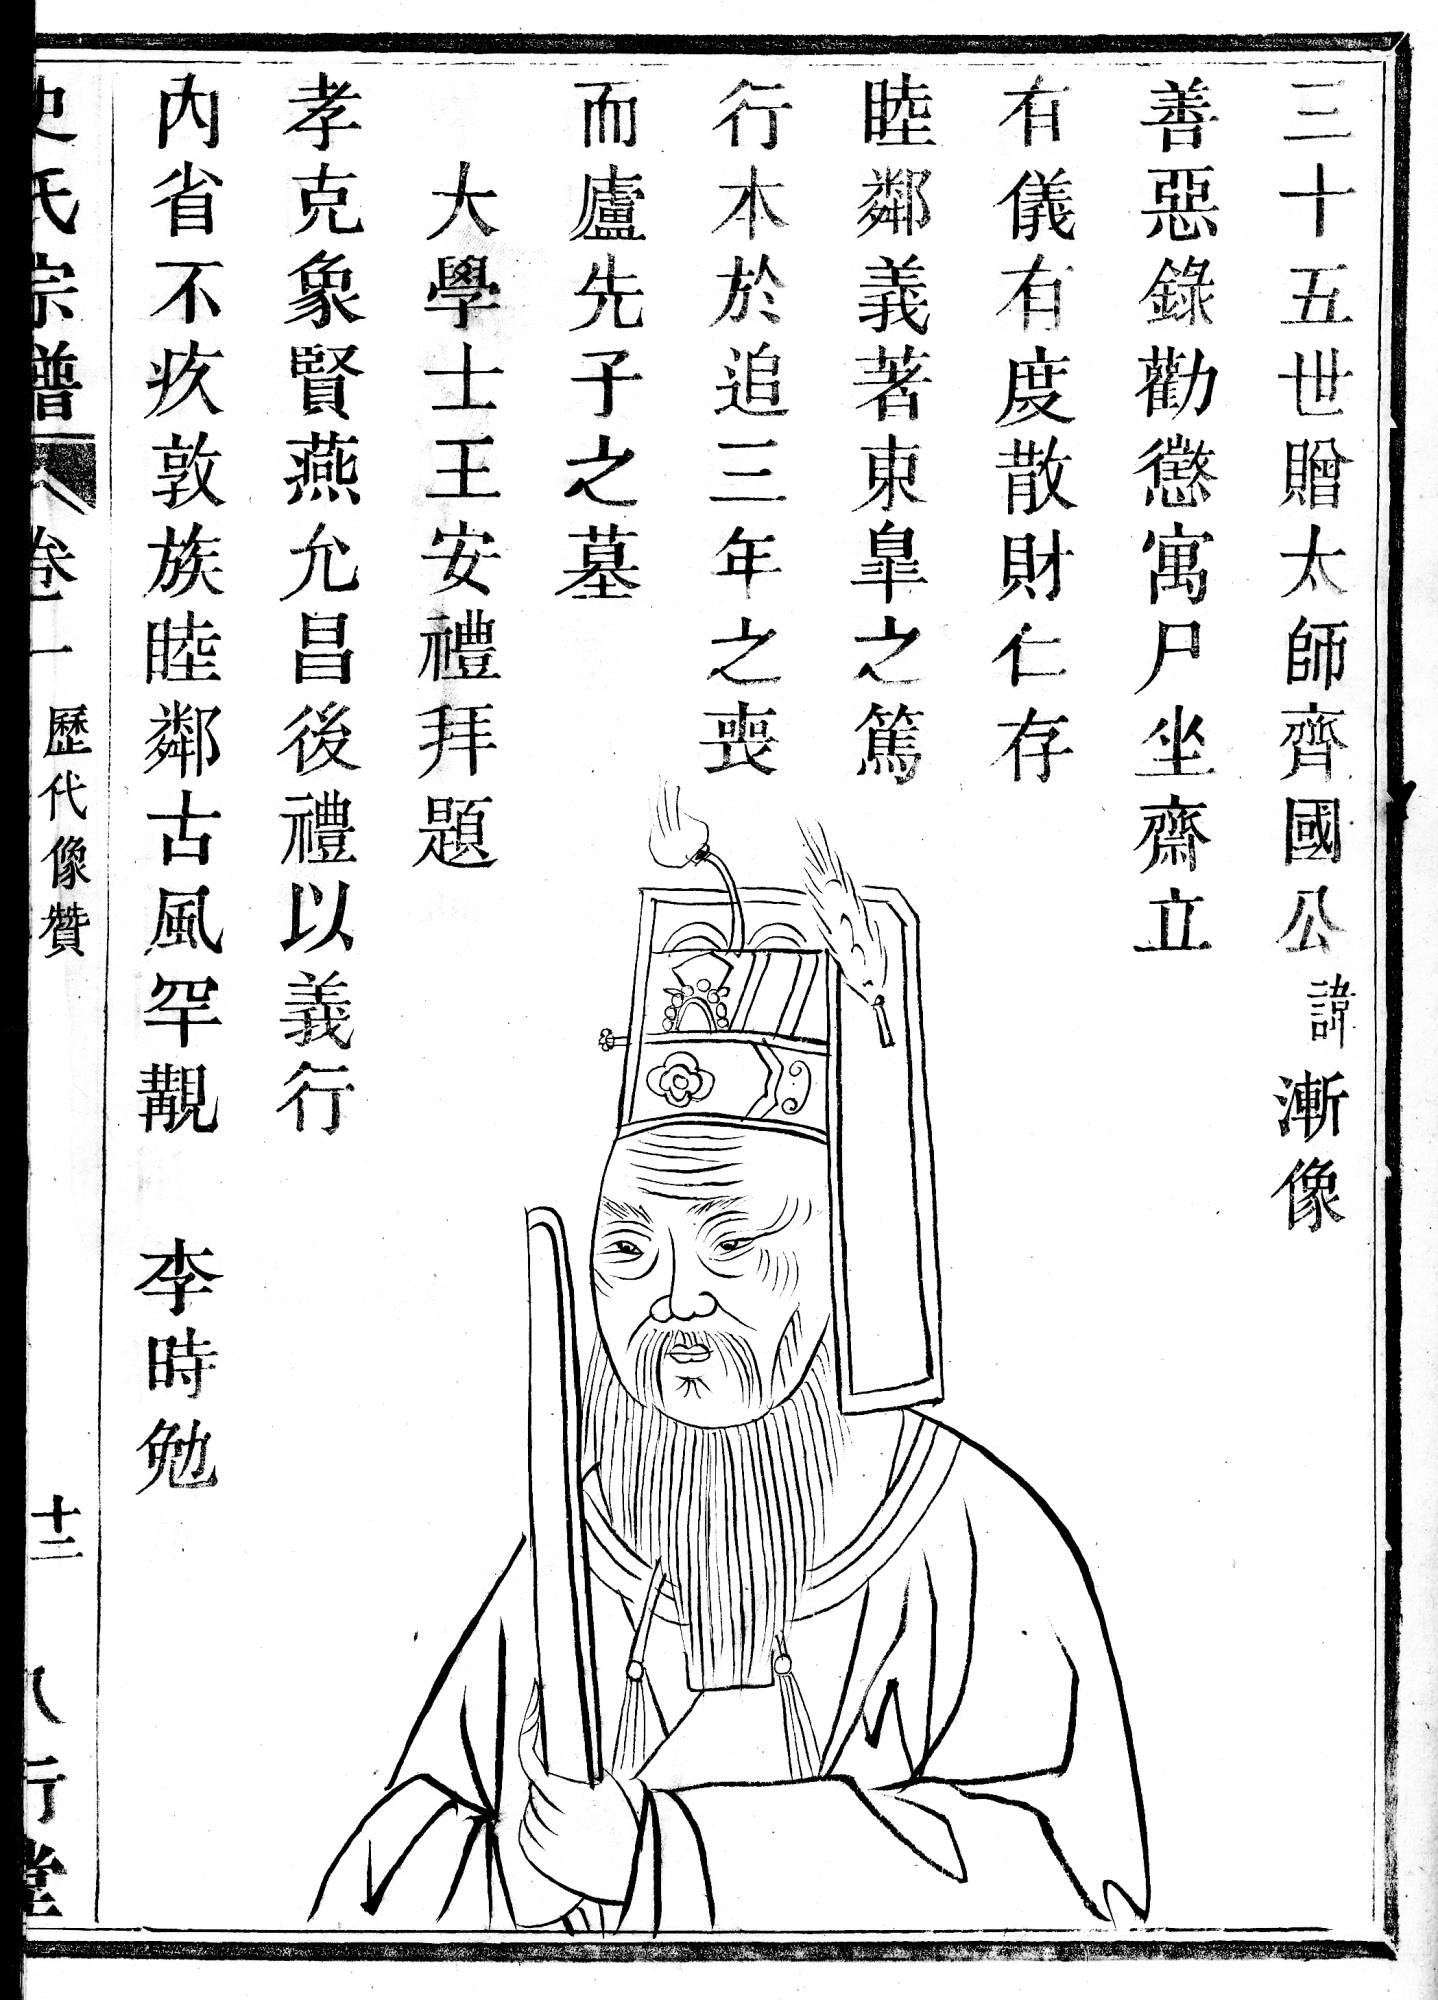 三十五世贈太師齊國公諱漸像
善惡錄勸懲寓尸坐齋立
有儀有度散財仁存
睦鄰義著東臯之篤
行本於追三年之喪
而廬先子之墓
大學士王安禮拜題
孝克象賢燕允昌後禮以義行
內省不疚敦族睦鄰古風罕覯　李時勉
史氏宗譜　卷一　歷代像贊　十二　八行堂